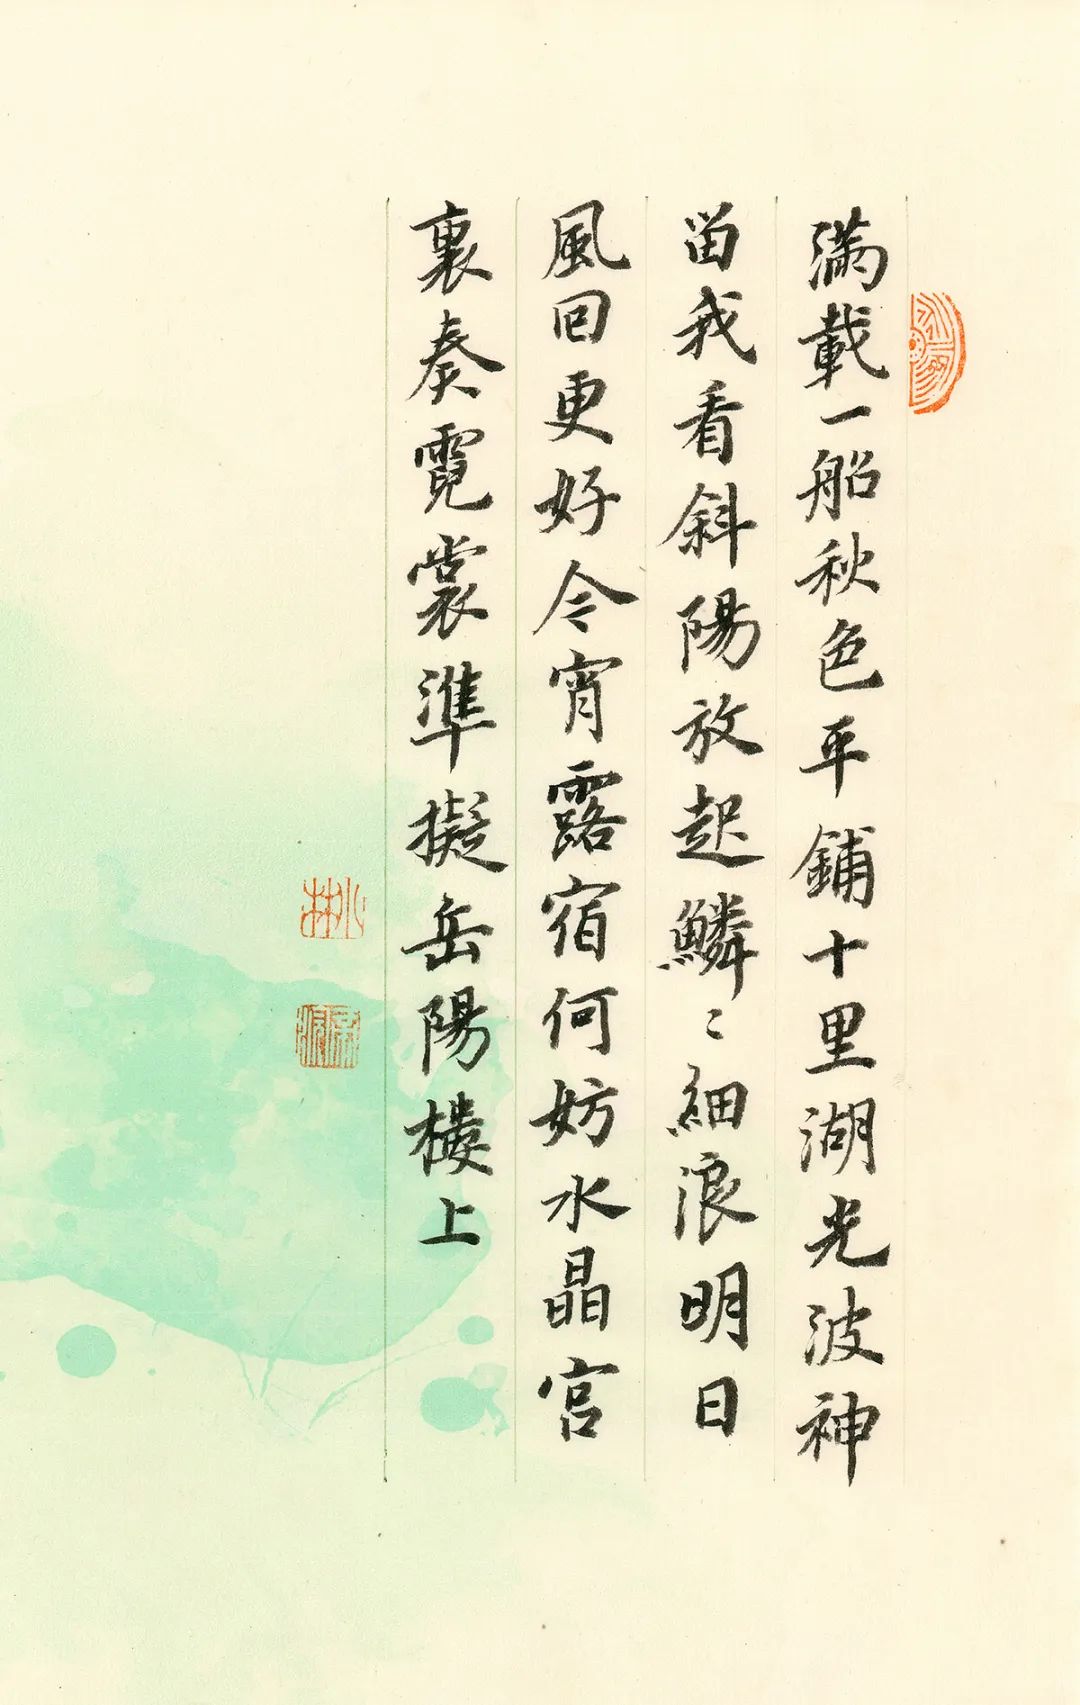 滿載一船秋色平鋪十里湖光波神
留我看斜陽放起鱗〻細浪明日
風回更好今宵露宿何妨水晶宮
裏奏霓裳準擬岳陽樓上